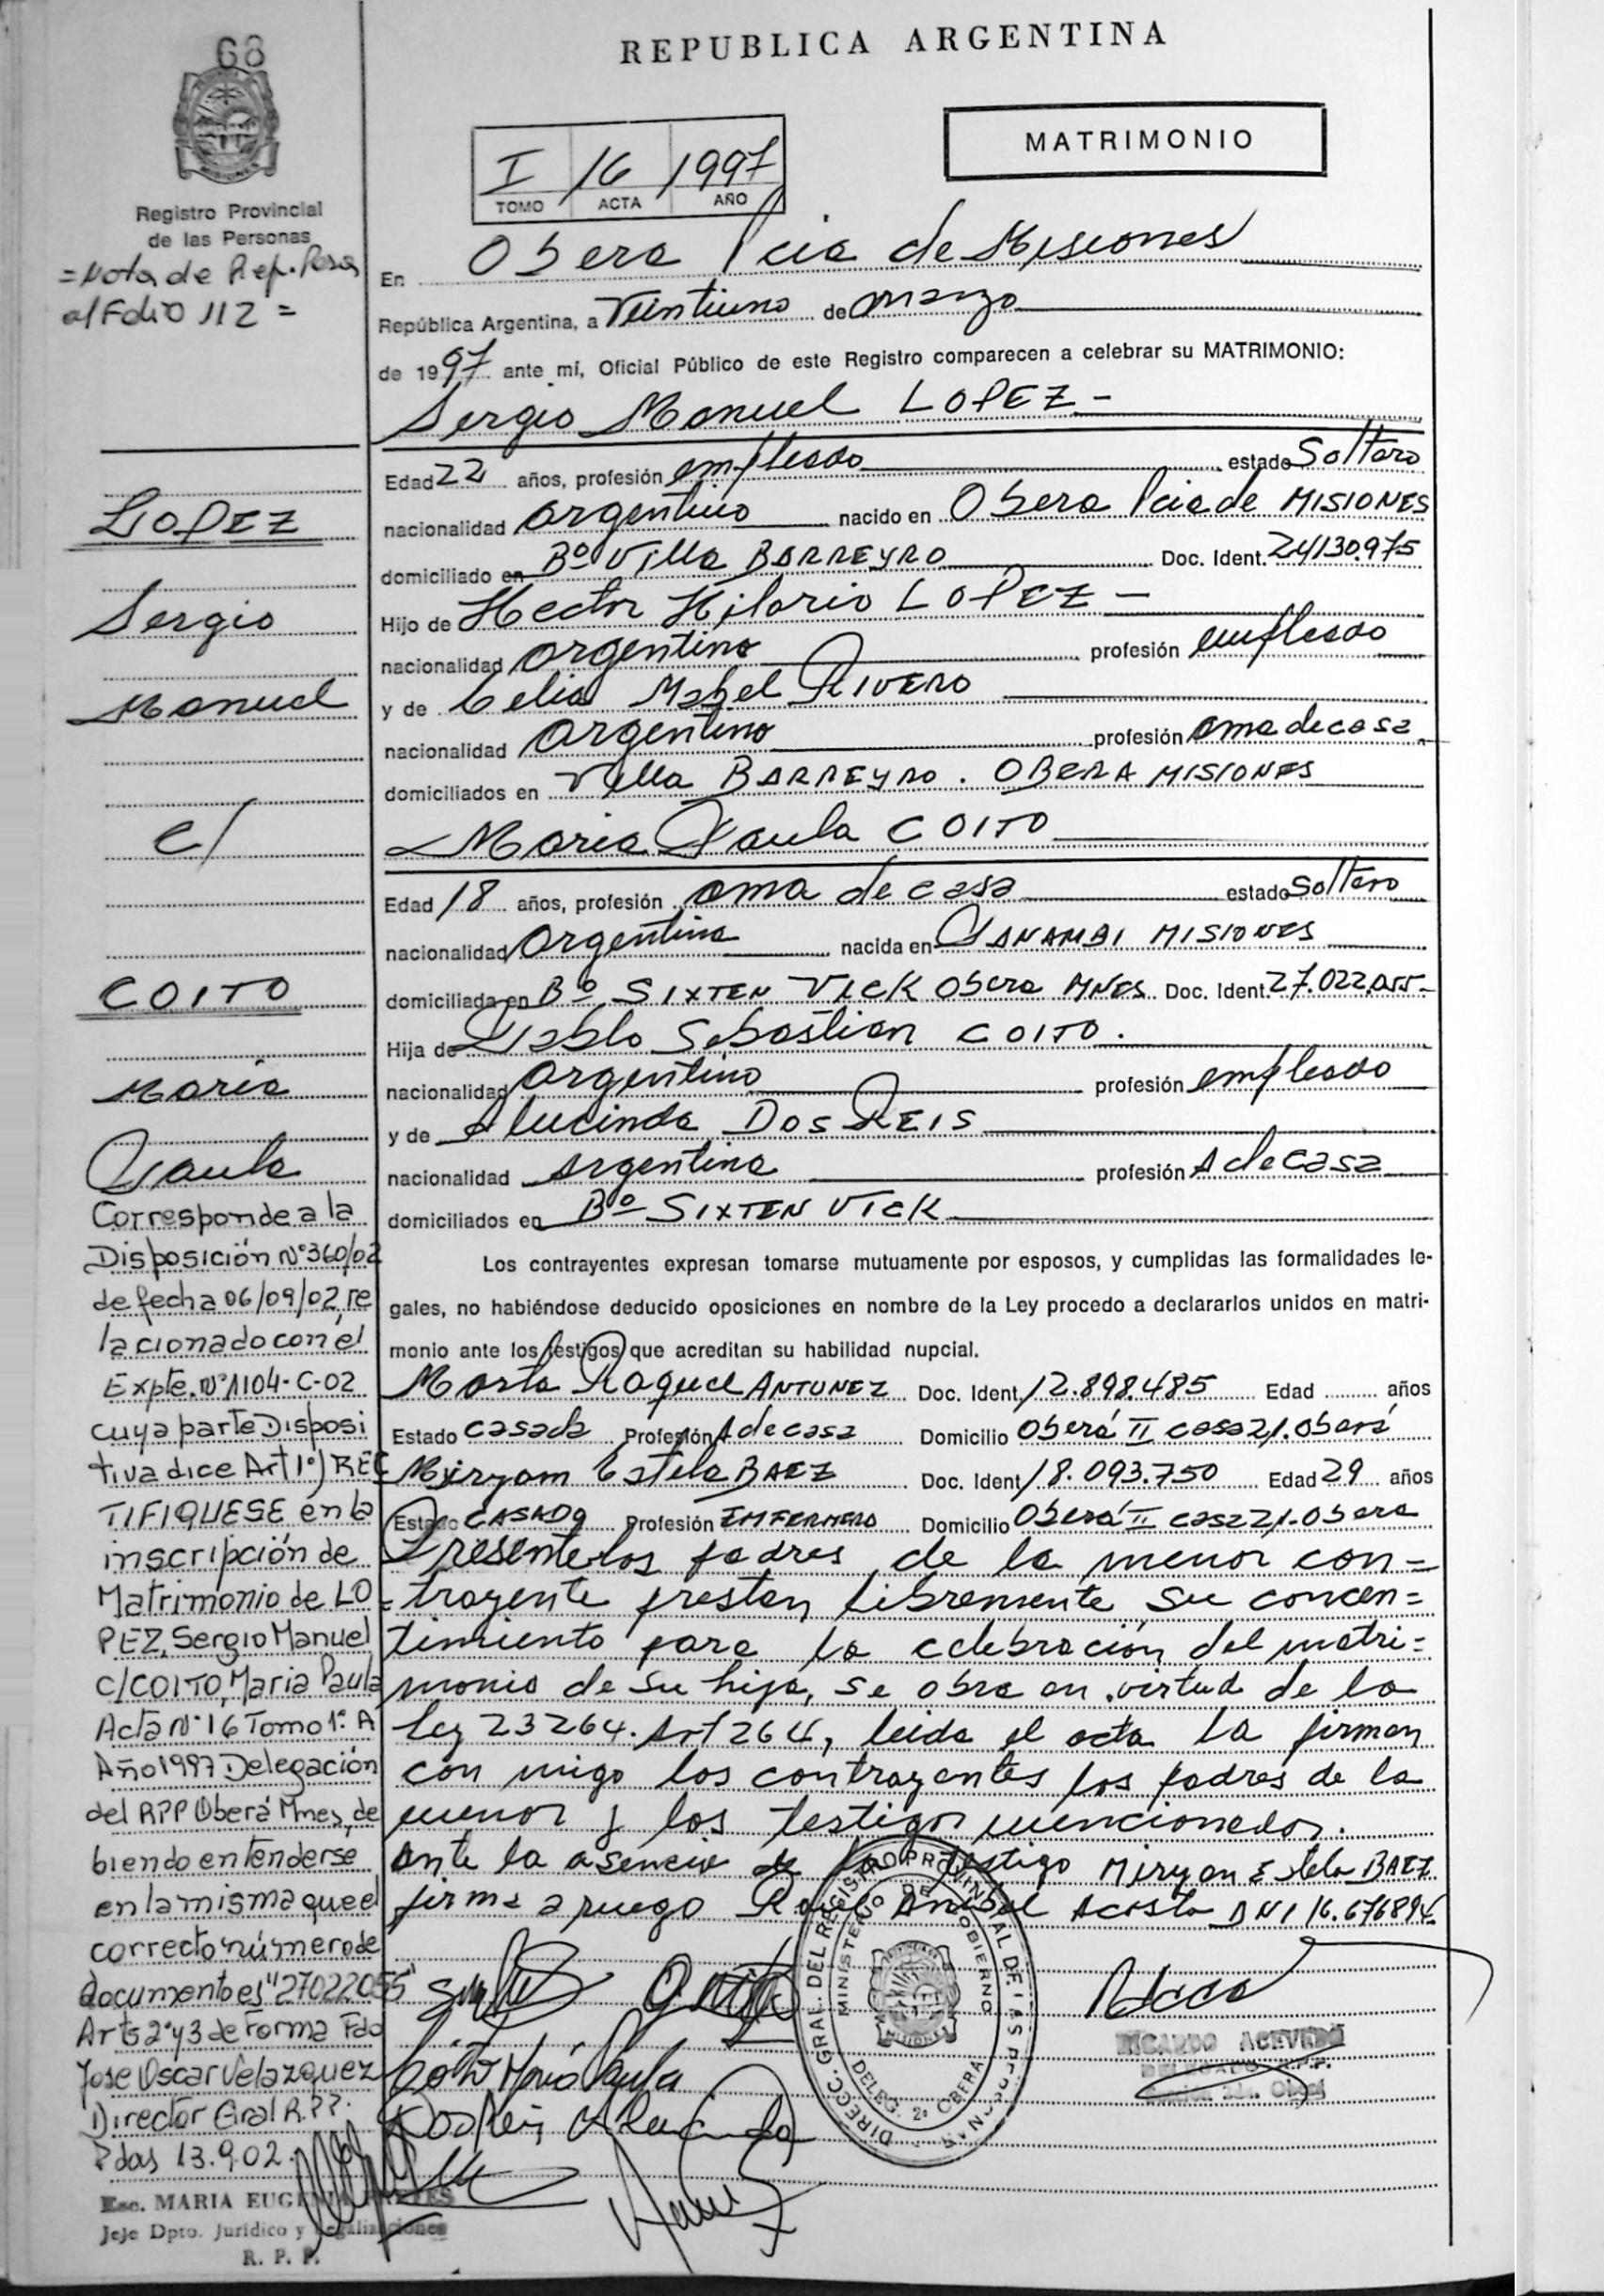 68
REPUBLICA ARGENTINA
MATRIMONIO
I 16 1997
TOMO ACTA AÑO
Registro Provincial
de las Personas
=Nota de Rep. Pcias
al Folio 112 =
En Obera Pcia de Misiones
República Argentina, a Veintiuno de marzo
de 1997 ante mí, Oficial Público de este Registro comparecen a celebrar su MATRIMONIO:
Sergio Manuel LOPEZ -
Edad 22 años, profesión empleado estado Soltero
nacionalidad argentino nacido en Obera Pcia de MISIONES
domiciliado en Bº Villa BARREYRO Doc. Ident. 24130.975
Hijo de Hector Hilario LOPEZ -
nacionalidad argentino profesión empleado
y de Celia Mabel RIVERO
nacionalidad argentina profesión ama de casa
domiciliados en Villa BARREYRO. OBERA MISIONES
Maria Paula COITO
Edad 18 años, profesión ama de casa estado Soltera
nacionalidad argentina nacida en PANAMBI MISIONES
domiciliada en Bº SIXTEN VICK Obera MNES Doc. Ident. 27.022.055-
Hija de Pablo Sebastian COITO.
nacionalidad argentino profesión empleado
y de Alucinda DOS REIS
nacionalidad argentina profesión A de casa
domiciliados en Bº SIXTEN VICK
Los contrayentes expresan tomarse mutuamente por esposos, y cumplidas las formalidades le-
gales, no habiéndose deducido oposiciones en nombre de la Ley procedo a declararlos unidos en matri-
monio ante los testigos que acreditan su habilidad nupcial.
Marta Raquel ANTUNEZ Doc. Ident. 12.898.485 Edad años
Estado casada Profesión A de casa Domicilio Oberá II casa 21. Oberá
Miryam Estela BAEZ Doc. Ident. 18.093.750 Edad 29 años
Estado CASADA Profesión ENFERMERA Domicilio Oberá II casa 21. Obera
Presente los padres de la menor con=
trayente prestan libremente su concen=
timiento para la celebración del matri=
monio de su hija, se obra en virtud de la
Ley 23264. Art 264, leida el acta la firman
con migo los contrayentes los padres de la
menor y los testigos mencionados.
Ante la asencia de la testigo Miryan Estela BAEZ
firma a ruego Raul Anibal Acosta DNI 16.676894
LOPEZ
Sergio
Manuel
c/
COITO
Maria
Paula
Corresponde a la
Disposición Nº 360/02
de fecha 06/09/02 re
lacionado con el
Expte. Nº 1104-C-02
cuya parte Disposi
tiva dice Art 1º) REC
TIFIQUESE en la
inscripción de
Matrimonio de LO
PEZ, Sergio Manuel
C/COITO, Maria Paula
Acta Nº 16 Tomo 1º A
Año 1997 Delegación
del RPP Oberá Mnes, de
biendo entenderse
en la misma que el
correcto número de
documento es "27022055"
Arts 2º y 3 de Forma Fdo
Jose Oscar Velazquez
Director Gral R.P.P.
Pdas 13.9.02.
Esc. MARIA EUGENIA
Jefe Dpto. Jurídico y Legalizaciones
R. P. P.
Coito María Paula
Dos Reis Alucinda
DIRECC. GRAL. DEL REGISTRO PROVINCIAL DE LAS PERSONAS
MINISTERIO DE GOBIERNO
DELEG. 2º OBERA
MISIONES
RICARDO ACEVEDO
DELEGADO R.P.P.